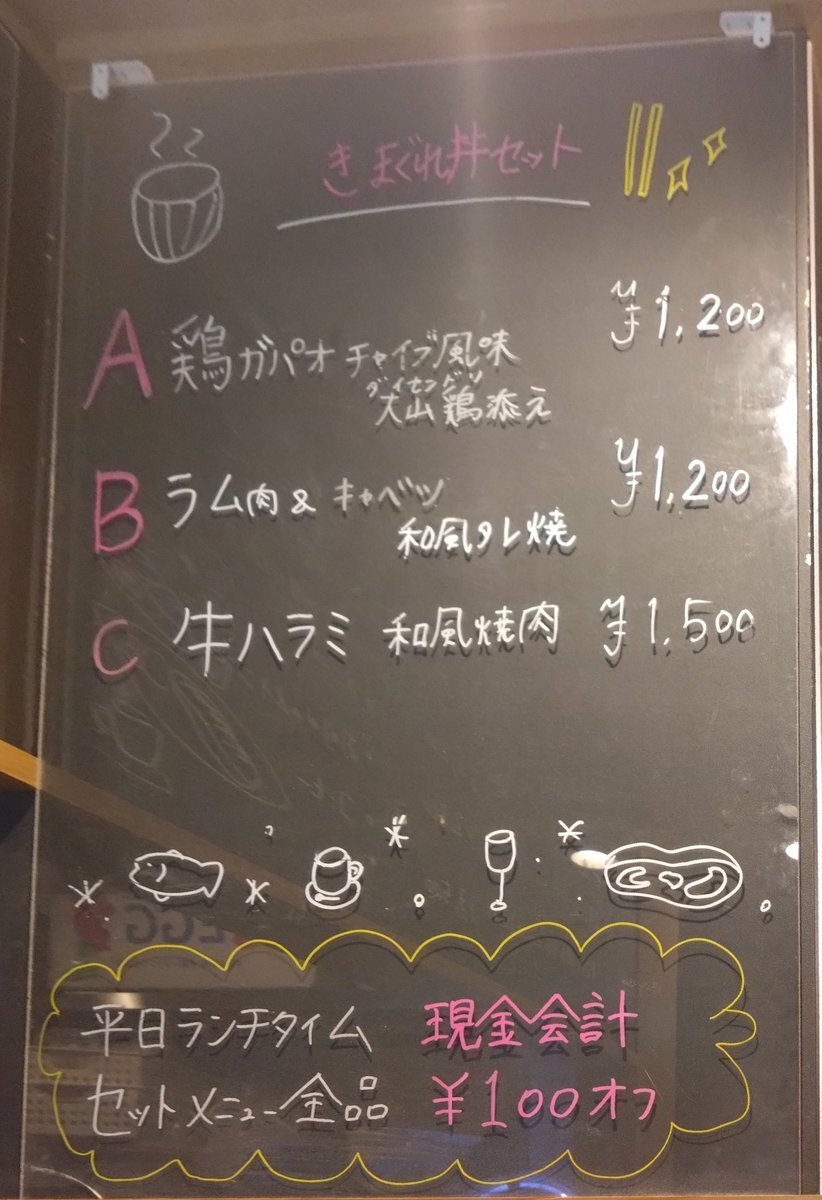 きまぐれ丼セット
A 鶏ガパオ チャイブ風味 ¥1,200
ダイセンドリ
大山鶏添え
B ラム肉&キャベツ ¥1,200
和風タレ焼
C 牛ハラミ 和風焼肉 ¥1,500
EGG
平日ランチタイム 現金会計
セットメニュー全品 ¥100オフ